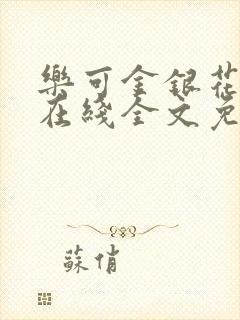 樂可金銀花
在綫全文免
蘇俏